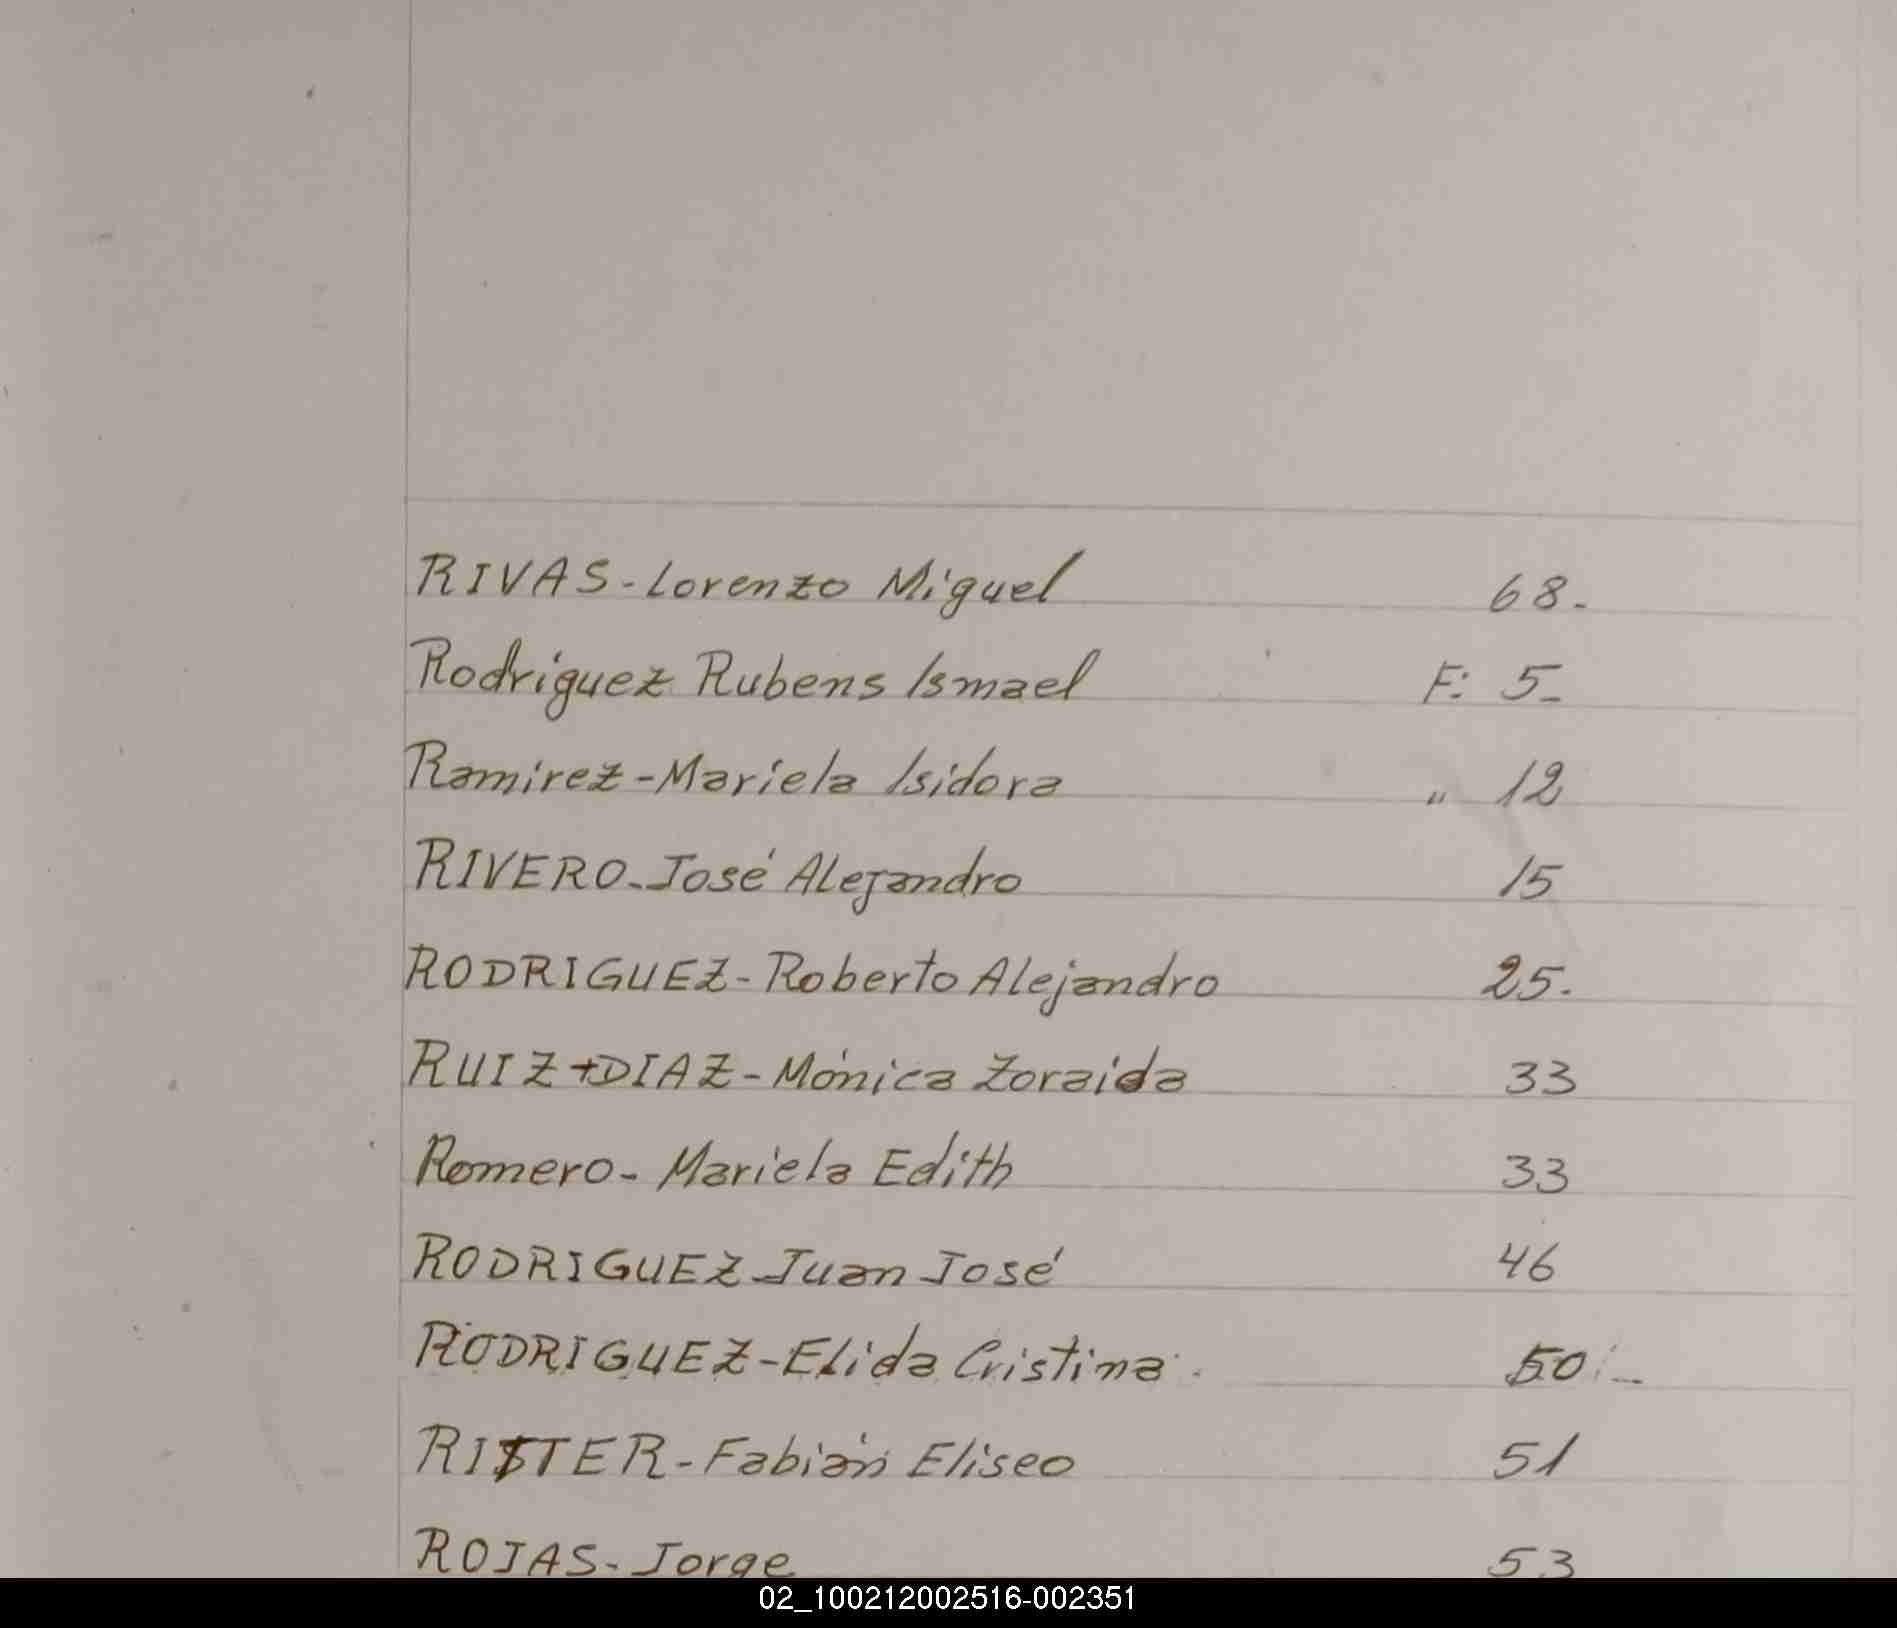 RIVAS - Lorenzo Miguel 68.
Rodriguez Rubens Ismael F: 5-
Ramirez - Mariela Isidora " 12
RIVERO - José Alejandro 15
RODRIGUEZ - Roberto Alejandro 25.
RUIZ + DIAZ - Mónica Zoraida 33
Romero - Mariela Edith 33
RODRIGUEZ - Juan José 46
RODRIGUEZ - Elida Cristina. 50.-
Fabián Eliseo 51
ROJAS - Jorge 53
02_100212002516-002351